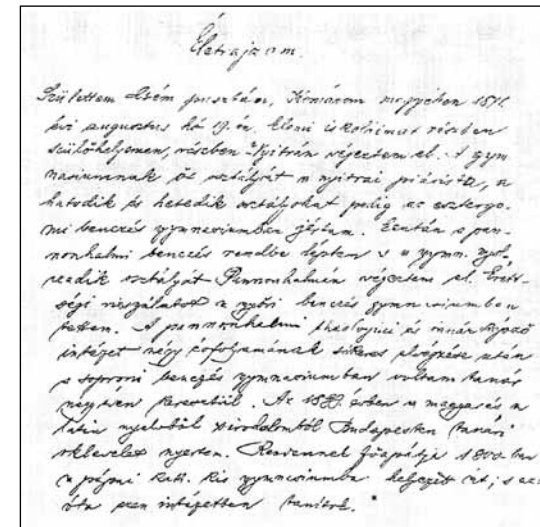 Életrajzom.
Születtem pusztán, Komárom megyében 1871.
évi augusztus hó 19.-én. Elemi iskoláimat részben
szülőhelyemen, részben Nyitrán végeztem el. A gym-
nasiumnak öt osztályát a nyitrai piarista, a
hatodik és hetedik osztályokat pedig az esztergo-
mi benczés gymnasiumban jártam. Ezután a pan-
nonhalmi benczés rendbe léptem s a gymn. nyol-
czadik osztályát Pannonhalmán végeztem el. Érett-
ségi vizsgálatot a győri benczés gymnasiumban
tettem. A pannonhalmi theologiai és tanárképző
intézet négy évfolyamának sikeres elvégzése után
a soproni benczés gymnasiumban voltam tanár
négy éven keresztül. Az évben a magyar és a
latin nyelvből s irodalomból Budapesten tanári
oklevelet nyertem. Rendemnek főapátja ban
a pápai kath. kis gymnasiumba helyezett át; s az-
óta ezen intézetben tanítok.